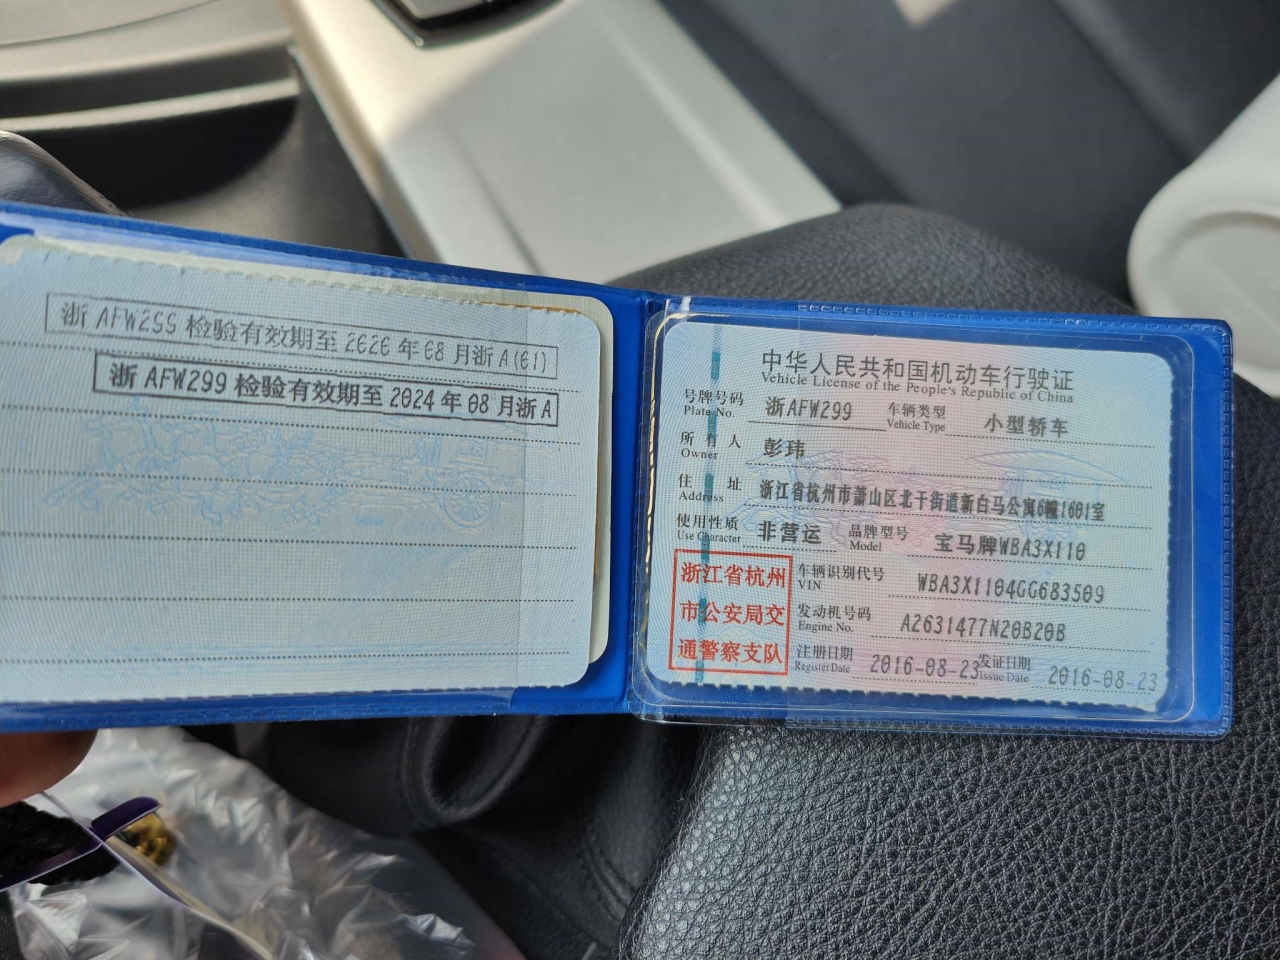 浙AFW299检验有效期至2026年08月浙A(01)
浙AFW299检验有效期至2024年08月浙A
中华人民共和国机动车行驶证
Vehicle License of the People's Republic of China
号牌号码 浙AFW299 车辆类型 小型轿车
Plate No. Vehicle Type
所有人 彭玮
Owner
住址 浙江省杭州市萧山区北干街道新白马公寓6幢1601室
Address
使用性质 非营运 品牌型号 宝马牌WBA3X110
Use Character Model
浙江省杭州
市公安局交
通警察支队
车辆识别代号 WBA3X1104GG683509
VIN
发动机号码 A2631477N20B20B
Engine No.
注册日期 2016-08-23 发证日期 2016-08-23
Register Date Issue Date